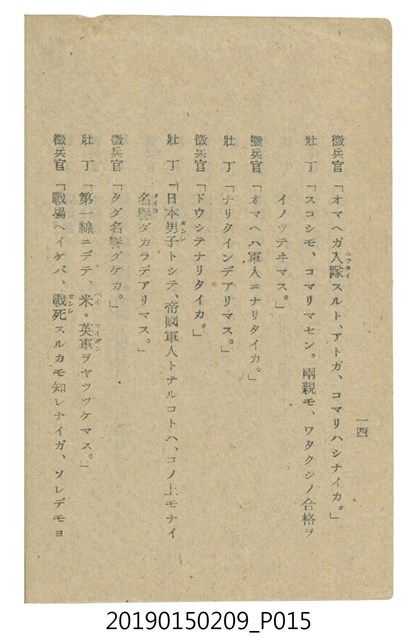 一四
徵兵官「オマヘガ入隊スルト、アトガ、コマリハシナイカ。」
壯丁「スコシモ、コマリマセン。兩親モ、ワタクシノ合格ヲ
イノツテヰマス。」
徵兵官「オマヘハ軍人ニナリタイカ。」
壯丁「ナリタインデアリマス。」
徵兵官「ドウシテナリタイカ。」
壯丁「日本男子トシテ、帝國軍人トナルコトハ、コノ上モナイ
名譽ダカラデアリマス。」
徵兵官「タダ名譽ダケカ。」
壯丁「第一線ニデテ、米・英軍ヲヤツツケマス。」
徵兵官「戰場ヘイケバ、戰死スルカモ知レナイガ、ソレデモヨ
20190150209_P015